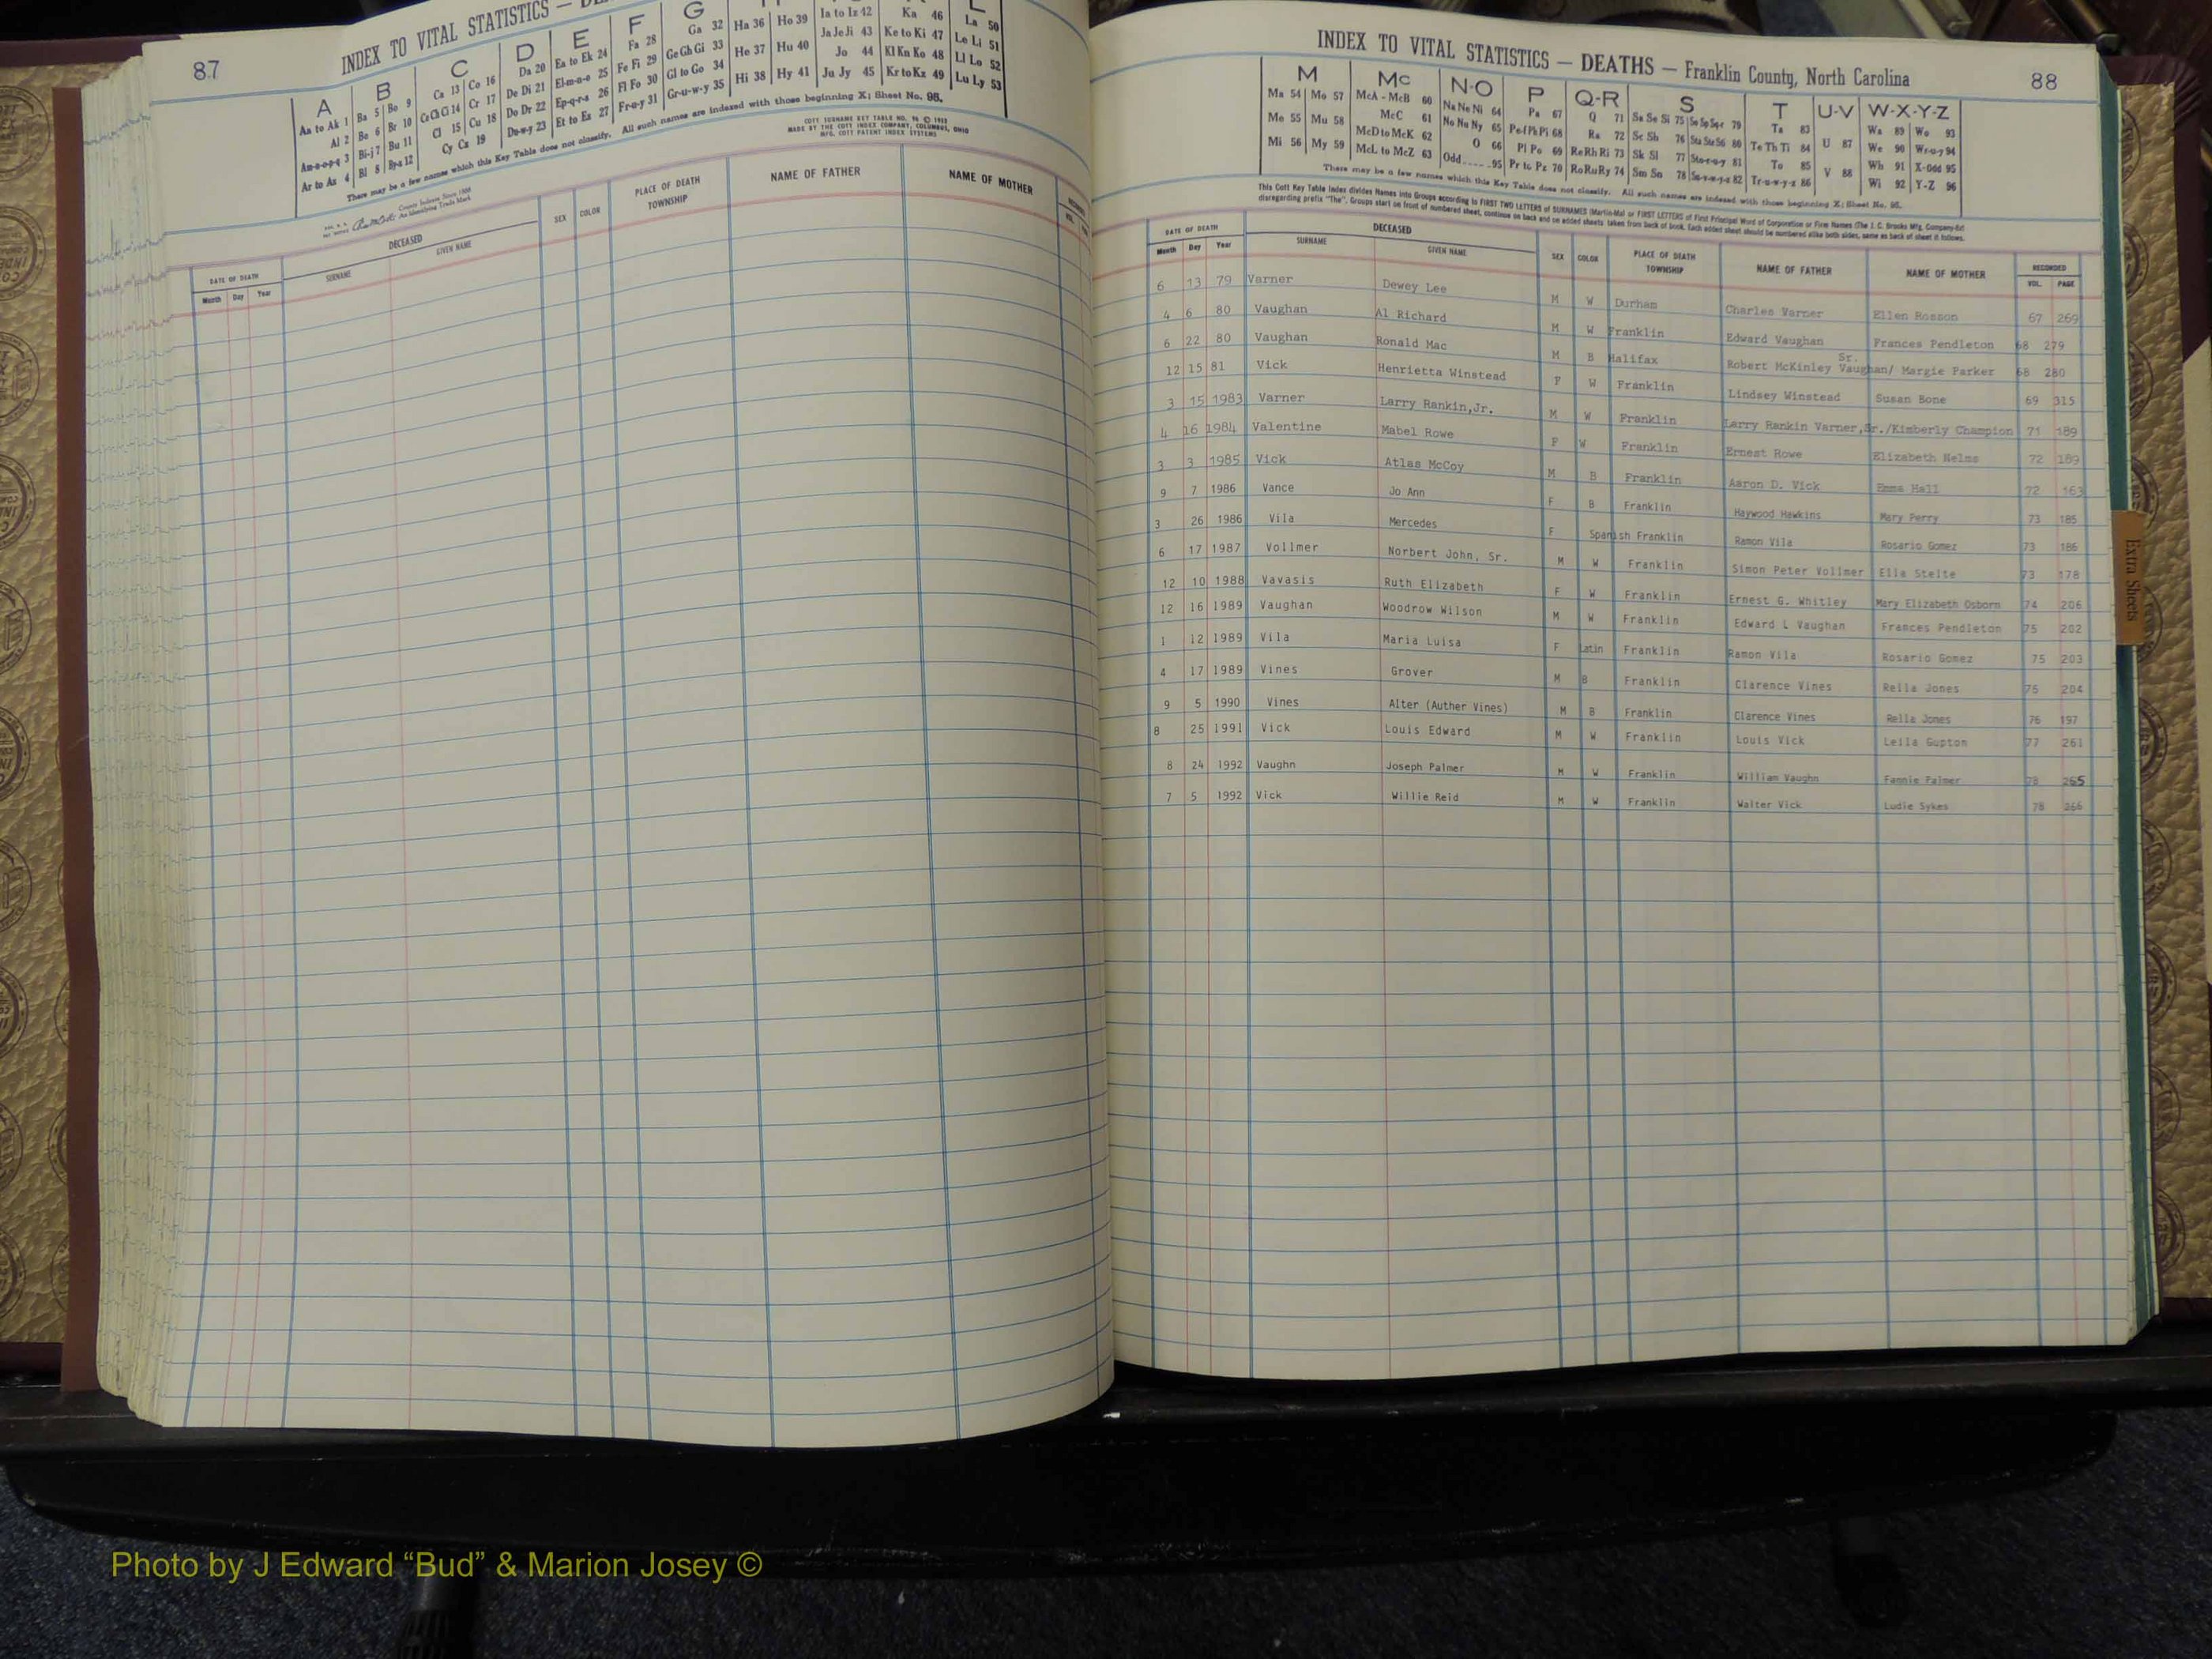 87
INDEX TO VITAL STATISTICS —
A B C D E F G
Aa to Ak 1 Ba 5 Bo 9 Ca 13 Co 16 Da 20 Ea to Ek 24 Fa 28 Ga 32 Ha 36 Ho 39 Ia to Iz 42 Ka 46 La 50
Al 2 Be 6 Br 10 Ce Ch Ci 14 Cr 17 De Di 21 El-m-n-o 25 Fe Fi 29 Ge Gh Gi 33 He 37 Hu 40 Ja Je Ji 43 Ke to Ki 47 Le Li 51
Am-n-o-p-q 3 Bi-j 7 Bu 11 Cl 15 Cu 18 Do Dr 22 Ep-q-r-s 26 Fl Fo 30 Gl to Go 34 Hi 38 Hy 41 Jo 44 Kl Kn Ko 48 Ll Lo 52
Ar to Az 4 Bl 8 By-z 12 Cy Cz 19 Du-w-y 23 Et to Ez 27 Fr-u-y 31 Gr-u-w-y 35 Ju Jy 45 Kr to Kz 49 Lu Ly 53
There may be a few names which this Key Table does not classify. All such names are indexed with those beginning X; Sheet No. 95.
COTT SURNAME KEY TABLE NO. 96 ©
MADE BY THE COTT INDEX COMPANY, COLUMBUS, OHIO
MFG. COTT PATENT INDEX SYSTEMS
County Indexes Since 1888
An Identifying Trade Mark
DATE OF DEATH DECEASED SEX COLOR PLACE OF DEATH TOWNSHIP NAME OF FATHER NAME OF MOTHER
Month Day Year SURNAME GIVEN NAME
INDEX TO VITAL STATISTICS — DEATHS — Franklin County, North Carolina 88
M Mc N-O P Q-R S T U-V W-X-Y-Z
Ma 54 Mo 57 McA - McB 60 Na Ne Ni 64 Pa 67 Q 71 Sa Se Si 75 So Sp Sq-r 79 Ta 83 U 87 Wa 89 Wo 93
Me 55 Mu 58 McC 61 No Nu Ny 65 Pe-f Ph Pi 68 Ra 72 Sc Sh 76 Sta Ste 80 Te Th Ti 84 V 88 We 90 Wr-u-y 94
Mi 56 My 59 McD to McK 62 O 66 Pl Po 69 Re Rh Ri 73 Sk Sl 77 Sto-r-u-y 81 To 85 Wh 91 X-Odd 95
McL to McZ 63 Odd 95 Pr to Pz 70 Ro Ru Ry 74 Sm Sn 78 Su-v-w-y-z 82 Tr-u-w-y-z 86 Wi 92 Y-Z 96
There may be a few names which this Key Table does not classify. All such names are indexed with those beginning X; Sheet No. 95.
This Cott Key Table Index divides Names into Groups according to FIRST TWO LETTERS of SURNAMES (Martin-Ma) or FIRST LETTERS of First Principal Word of Corporation or Firm Names (The J. C. Brooks Mfg. Company-Br)
disregarding prefix "The". Groups start on front of numbered sheet, continue on back and on added sheets taken from back of book. Each added sheet should be numbered alike both sides, same as back of sheet it follows.
DATE OF DEATH DECEASED SEX COLOR PLACE OF DEATH TOWNSHIP NAME OF FATHER NAME OF MOTHER RECORDED
Month Day Year SURNAME GIVEN NAME VOL. PAGE
6 13 79 Varner Dewey Lee M W Durham Charles Varner Ellen Rosson 67 269
4 6 80 Vaughan Al Richard M W Franklin Edward Vaughan Frances Pendleton 68 279
6 22 80 Vaughan Ronald Mac M B Halifax Robert McKinley Vaughan/ Sr. Margie Parker 68 280
12 15 81 Vick Henrietta Winstead F W Franklin Lindsey Winstead Susan Bone 69 315
3 15 1983 Varner Larry Rankin,Jr. M W Franklin Larry Rankin Varner,Sr./Kimberly Champion 71 189
4 16 1984 Valentine Mabel Rowe F W Franklin Ernest Rowe Elizabeth Nelms 72 189
3 3 1985 Vick Atlas McCoy M B Franklin Aaron D. Vick Emma Hall 72 163
9 7 1986 Vance Jo Ann F B Franklin Haywood Hawkins Mary Perry 73 185
3 26 1986 Vila Mercedes F Spanish Franklin Ramon Vila Rosario Gomez 73 186
6 17 1987 Vollmer Norbert John, Sr. M W Franklin Simon Peter Vollmer Ella Stelte 73 178
12 10 1988 Vavasis Ruth Elizabeth F W Franklin Ernest G. Whitley Mary Elizabeth Osborn 74 206
12 16 1989 Vaughan Woodrow Wilson M W Franklin Edward L Vaughan Frances Pendleton 75 202
1 12 1989 Vila Maria Luisa F Latin Franklin Ramon Vila Rosario Gomez 75 203
4 17 1989 Vines Grover M B Franklin Clarence Vines Rella Jones 75 204
9 5 1990 Vines Alter (Auther Vines) M B Franklin Clarence Vines Rella Jones 76 197
8 25 1991 Vick Louis Edward M W Franklin Louis Vick Leila Gupton 77 261
8 24 1992 Vaughn Joseph Palmer M W Franklin William Vaughn Fannie Palmer 78 265
7 5 1992 Vick Willie Reid M W Franklin Walter Vick Ludie Sykes 78 266
Extra Sheets
Photo by J Edward “Bud” & Marion Josey ©